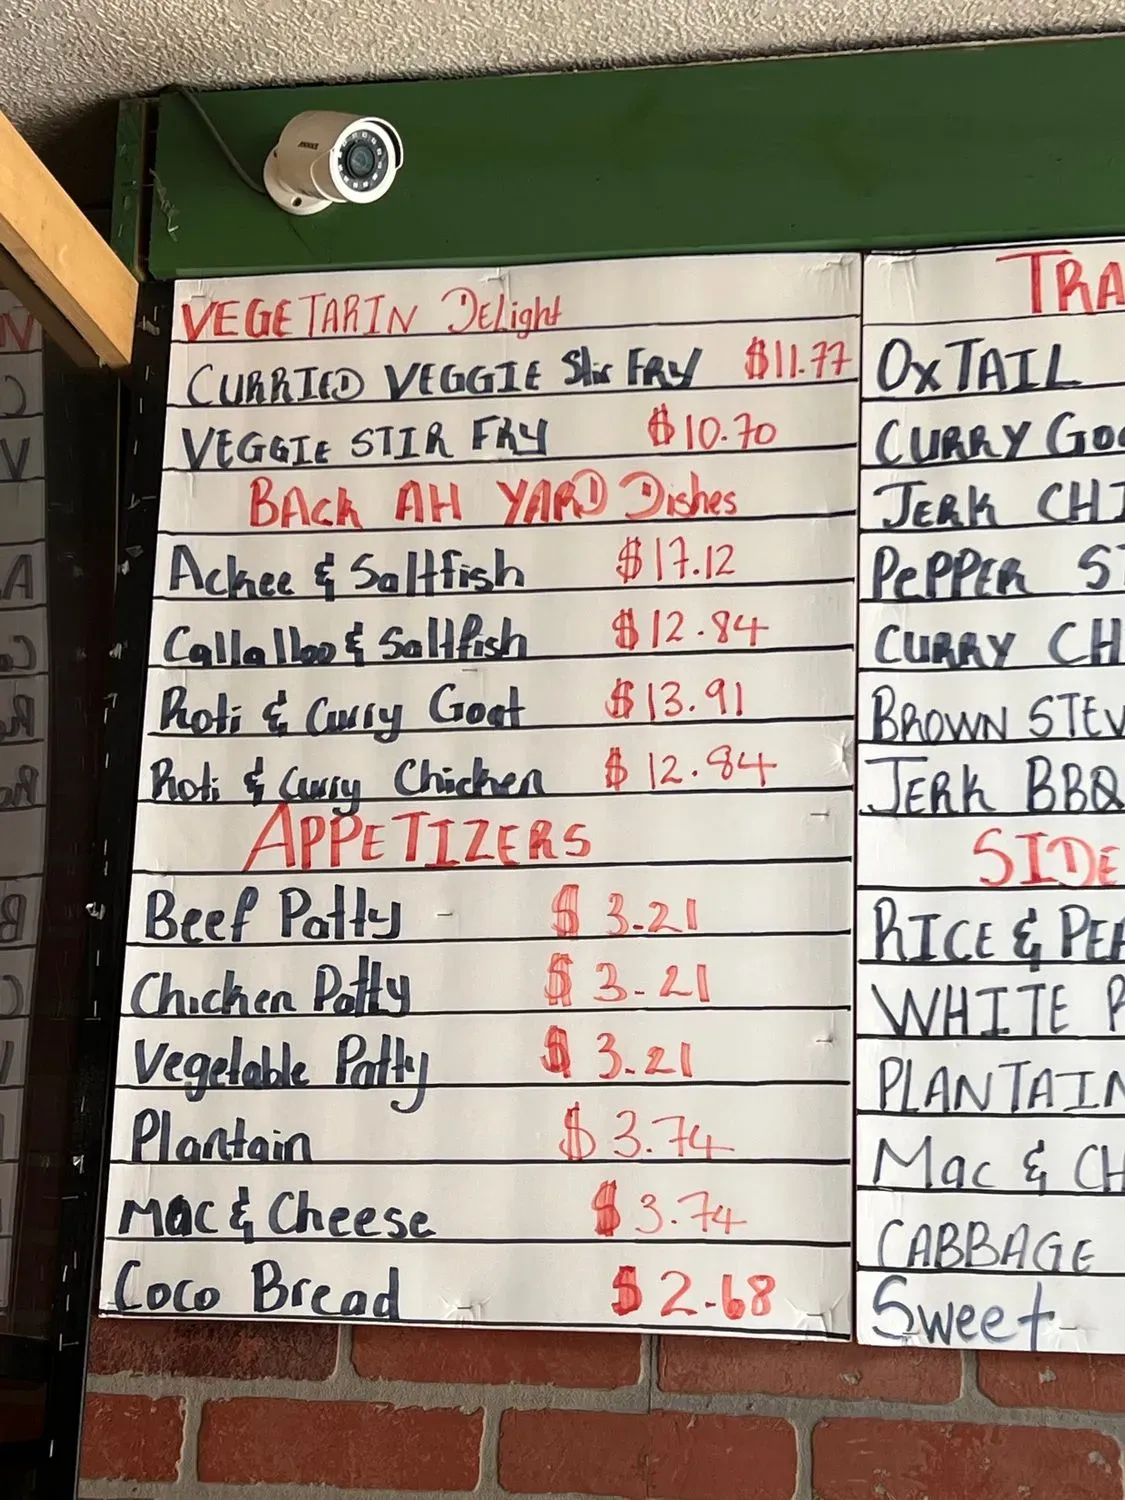 VEGETARIN DELight
CURRIED VEGGIE Stir FRY $11.77
VEGGIE STIR FRY $10.70
BACK AH YARD Dishes
Ackee & Saltfish $17.12
Callalloo & Saltfish $12.84
Roti & Curry Goat $13.91
Roti & Curry Chicken $12.84
APPETIZERS
Beef Patty $3.21
Chicken Patty $3.21
Vegetable Patty $3.21
Plantain $3.74
Mac & Cheese $3.74
Coco Bread $2.68
TRA
OxTAIL
CURRY GO
JERK CHI
PEPPER ST
CURRY CH
BROWN STEW
JERK BBQ
SIDE
RICE & PEA
WHITE
PLANTAIN
Mac & CH
CABBAGE
Sweet